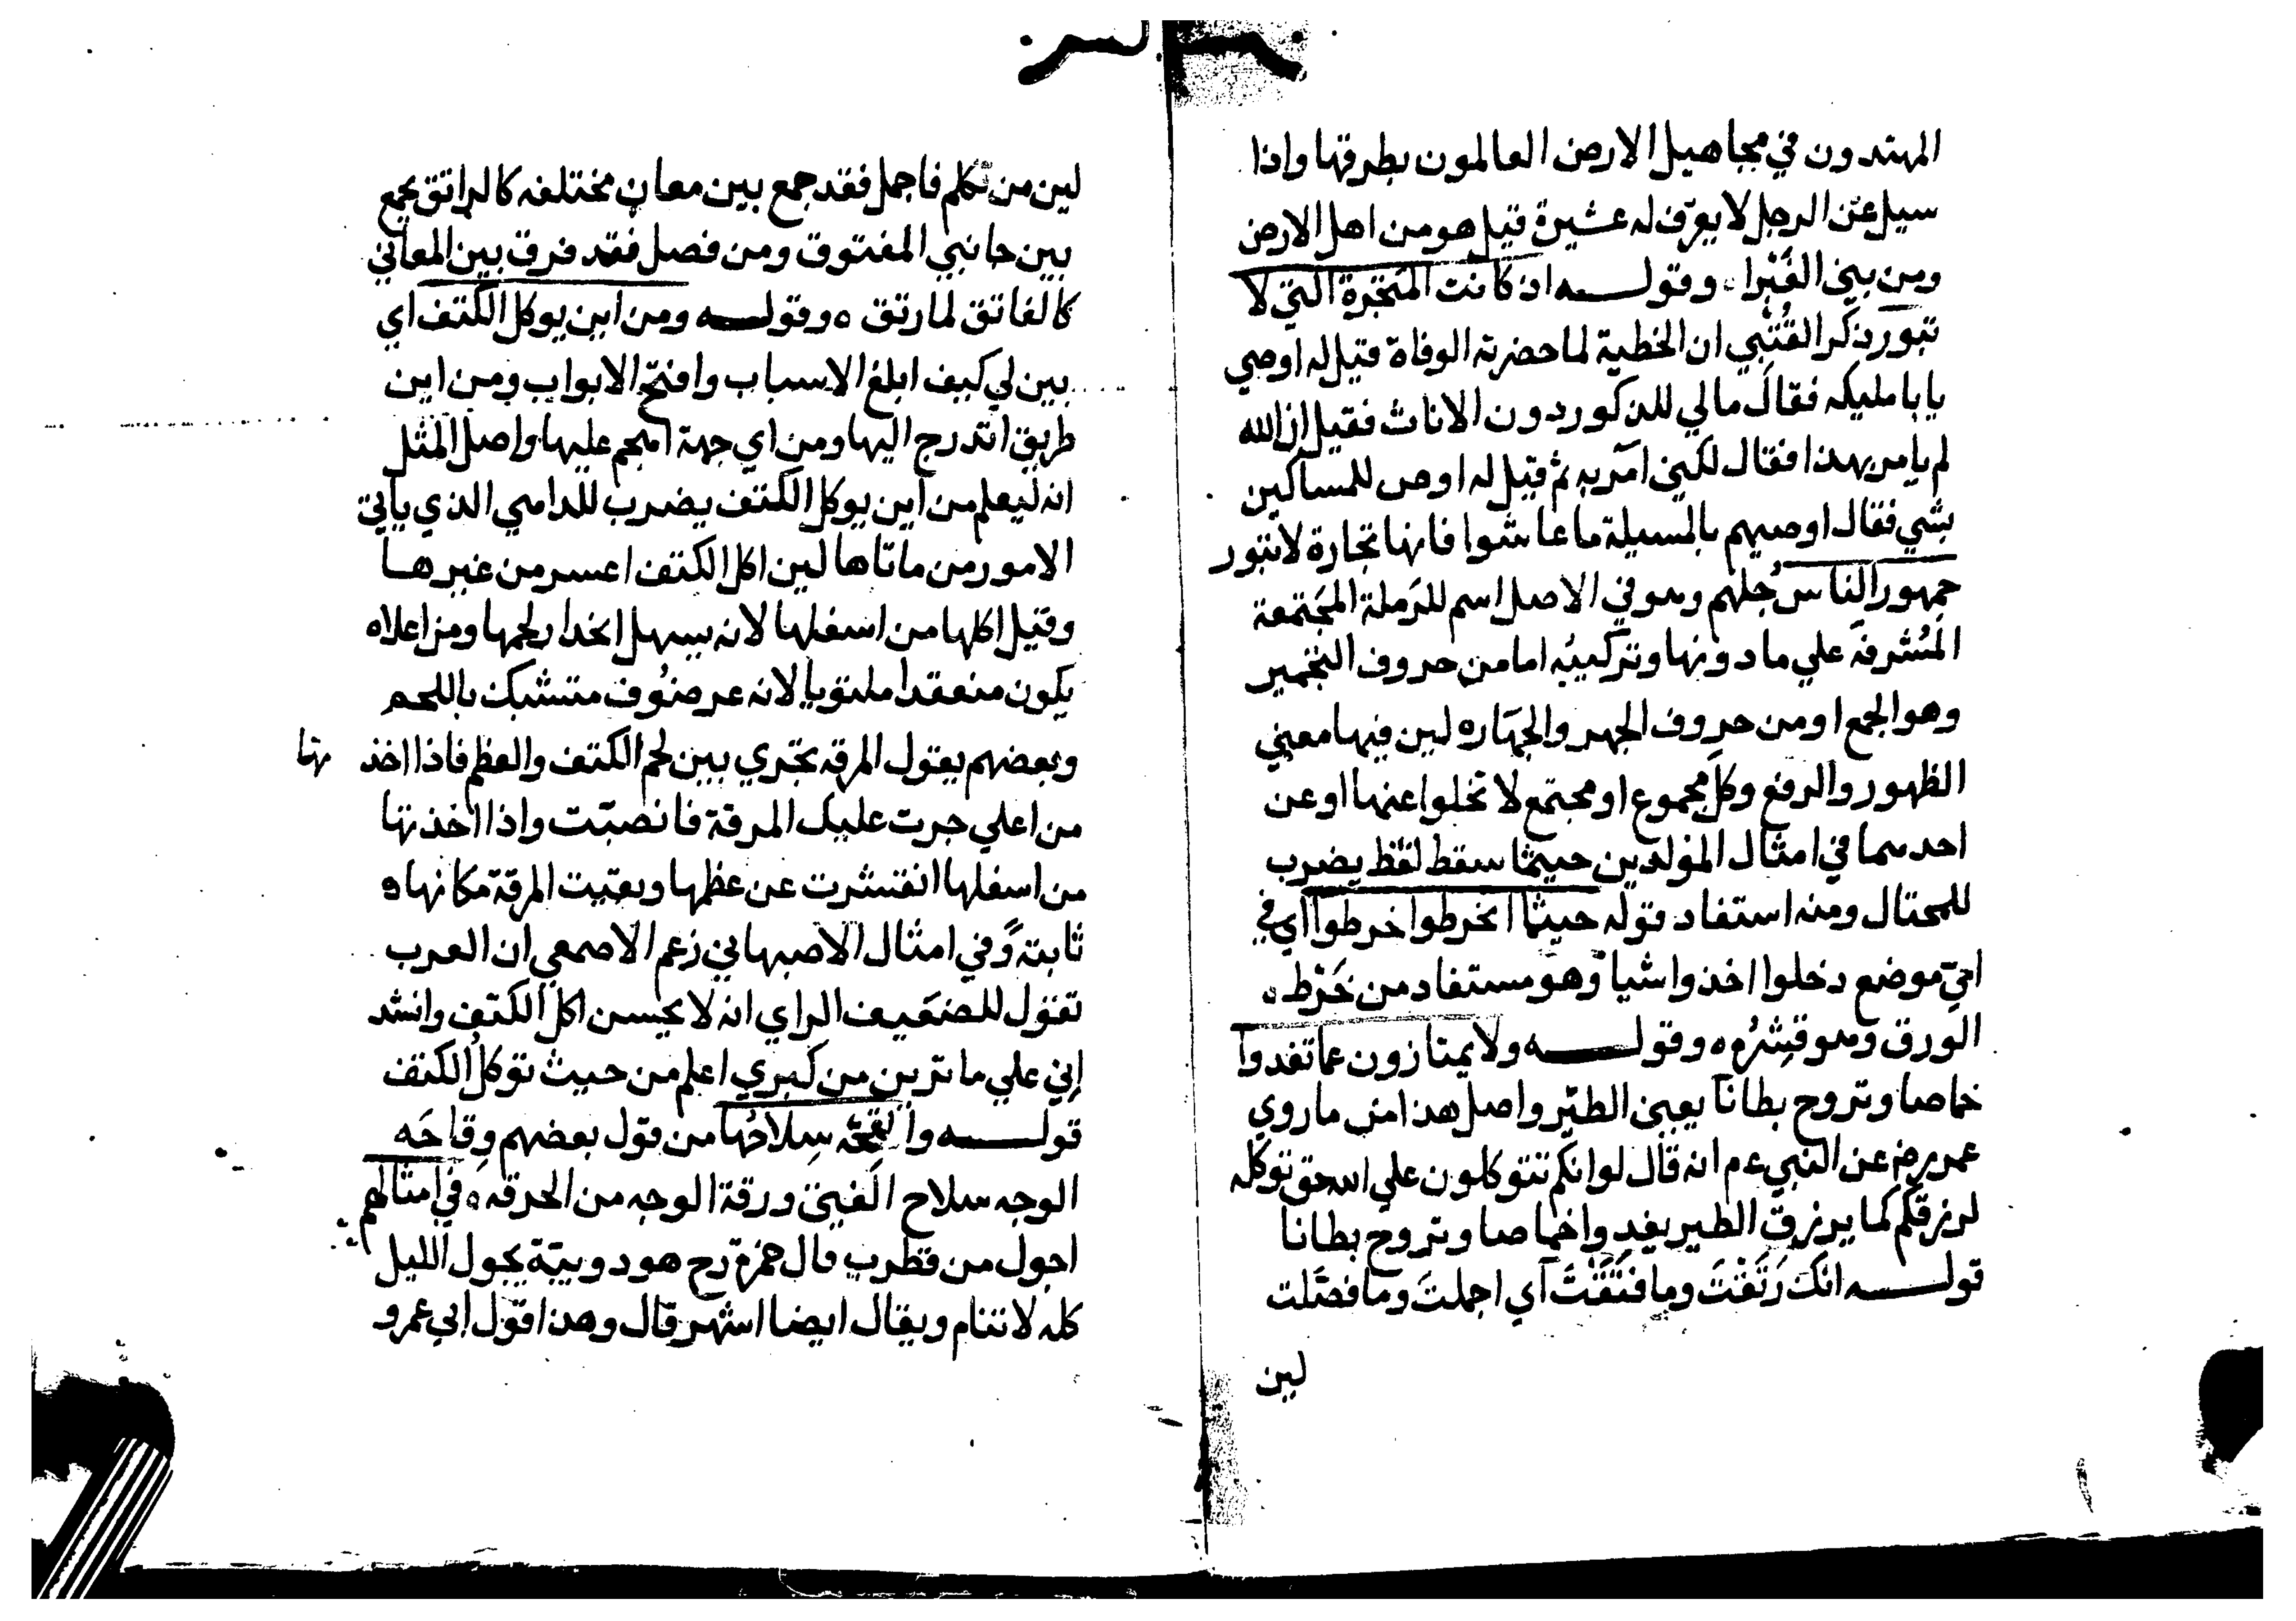 المهتدون في مجاهيل الارض العالمون بطرقها واذا
سيل عن الرجل لا يعرف له عشيرة قيل هو من اهل الارض
ومن بني الغَبْرا وقولـــه ان كانت المتجرة التي لا
تبور ذكر القُتَبي ان الخطية لما حضرته الوفاة قيل له اوصي
يا با مليكه فقال مالي للذكور دون الاناث فقيل ان الله
لم يامر بهذا فقال لكني آمر به ثم قيل له اوص للمساكين
بشي فقال اوصيهم بالمسيلة ما عاشوا فانها تجارة لا تبور
جمهور الناس جُلهم وهو في الاصل اسم للرملة المجتمعة
المُشرفة علي ما دونها وتركيبُه اما من حروف التجمير
وهو الجمع او من حروف الجهر والجهاره لين فيها معني
الظهور والرفع وكل مجموع او مجتمع لا تخلوا عنها او عن
احدهما في امثال المولدين حيثما سقط لقط يضرب
للمحتال ومنه استفاد قوله حيثما انخرطوا خرطوا اي في
اي موضع دخلوا اخذوا شيا وهو مستفاد من خَرْط ه
الورق وهو قشرُه ه وقولـــه ولا يمتازون عما تغدوا
خماصا وتروح بطانا يعني الطير واصل هذا من ما روي
عمر رض عن النبي ءم انه قال لو انكم تتوكلون علي الله حق توكله
لرزقكم كما يرزق الطير يغدوا خماصا وتروح بطانا
قولـــه انك رَتَقْتَ وما فَتَقْتَ اي اجملتَ وما فصَّلت
لين
لين من تكلم فاجمل فقد جمع بين معان مختلفه كالراتق يجمع
بين جانبي المفتوق ومن فصل فقد فرق بين المعاني
كالفاتق لما رتق ه وقولـــه ومن اين يوكل الكتف اي
بين لي كيف ابلغ الاسباب وافتح الابواب ومن اين
طريق اتدرج اليها ومن اي جهة اهجم عليها واصل المثل
انه ليعلم من اين يوكل الكتف يضرب للداهي الذي ياتي
الامور من ماتاها لين اكل الكتف اعسر من غيرها
وقيل اكلها من اسفلها لانه يسهل انحدار لحمها ومن اعلاه
يكون منعقدا ملتويا لانه عرضوف متشبك باللحم
وبعضهم يقول المرقه تجري بين لحم الكتف والعظم فاذا اخذ تها
من اعلي جرت عليك المرقة فانصبّت واذا اخذتها
من اسفلها انقشرت عن عظمها وبقيت المرقة مكانها ه
ثابتةً وفي امثال الاصبهاني زعم الاصمعي ان العرب
تقول للضعيف الراي انه لا يحسن اكل الكتف وانشد
إني علي ما ترين من كبري اعلم من حيث توكلُ الكتف
قولـــه والقحة سِلاحُها من قول بعضهم وِقاحَه
الوجه سلاح الفتي ورقة الوجه من الحرفه ه في امثالهم
اجول من قطرب قال حمزة رح هو دويبّة يجول الليل
كله لا تنام ويقال ايضا اسهر قال وهذا قول ابي عمرو